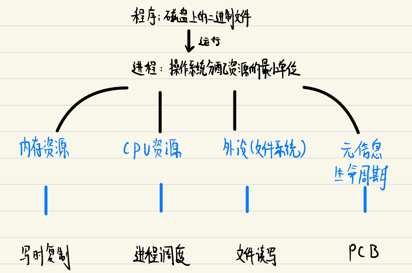 程序:磁盘上的二进制文件
运行
进程:操作系统分配资源的最小单位
内存资源
CPU资源
外设(文件系统)
元信息
生命周期
写时复制
进程调度
文件读写
PCB